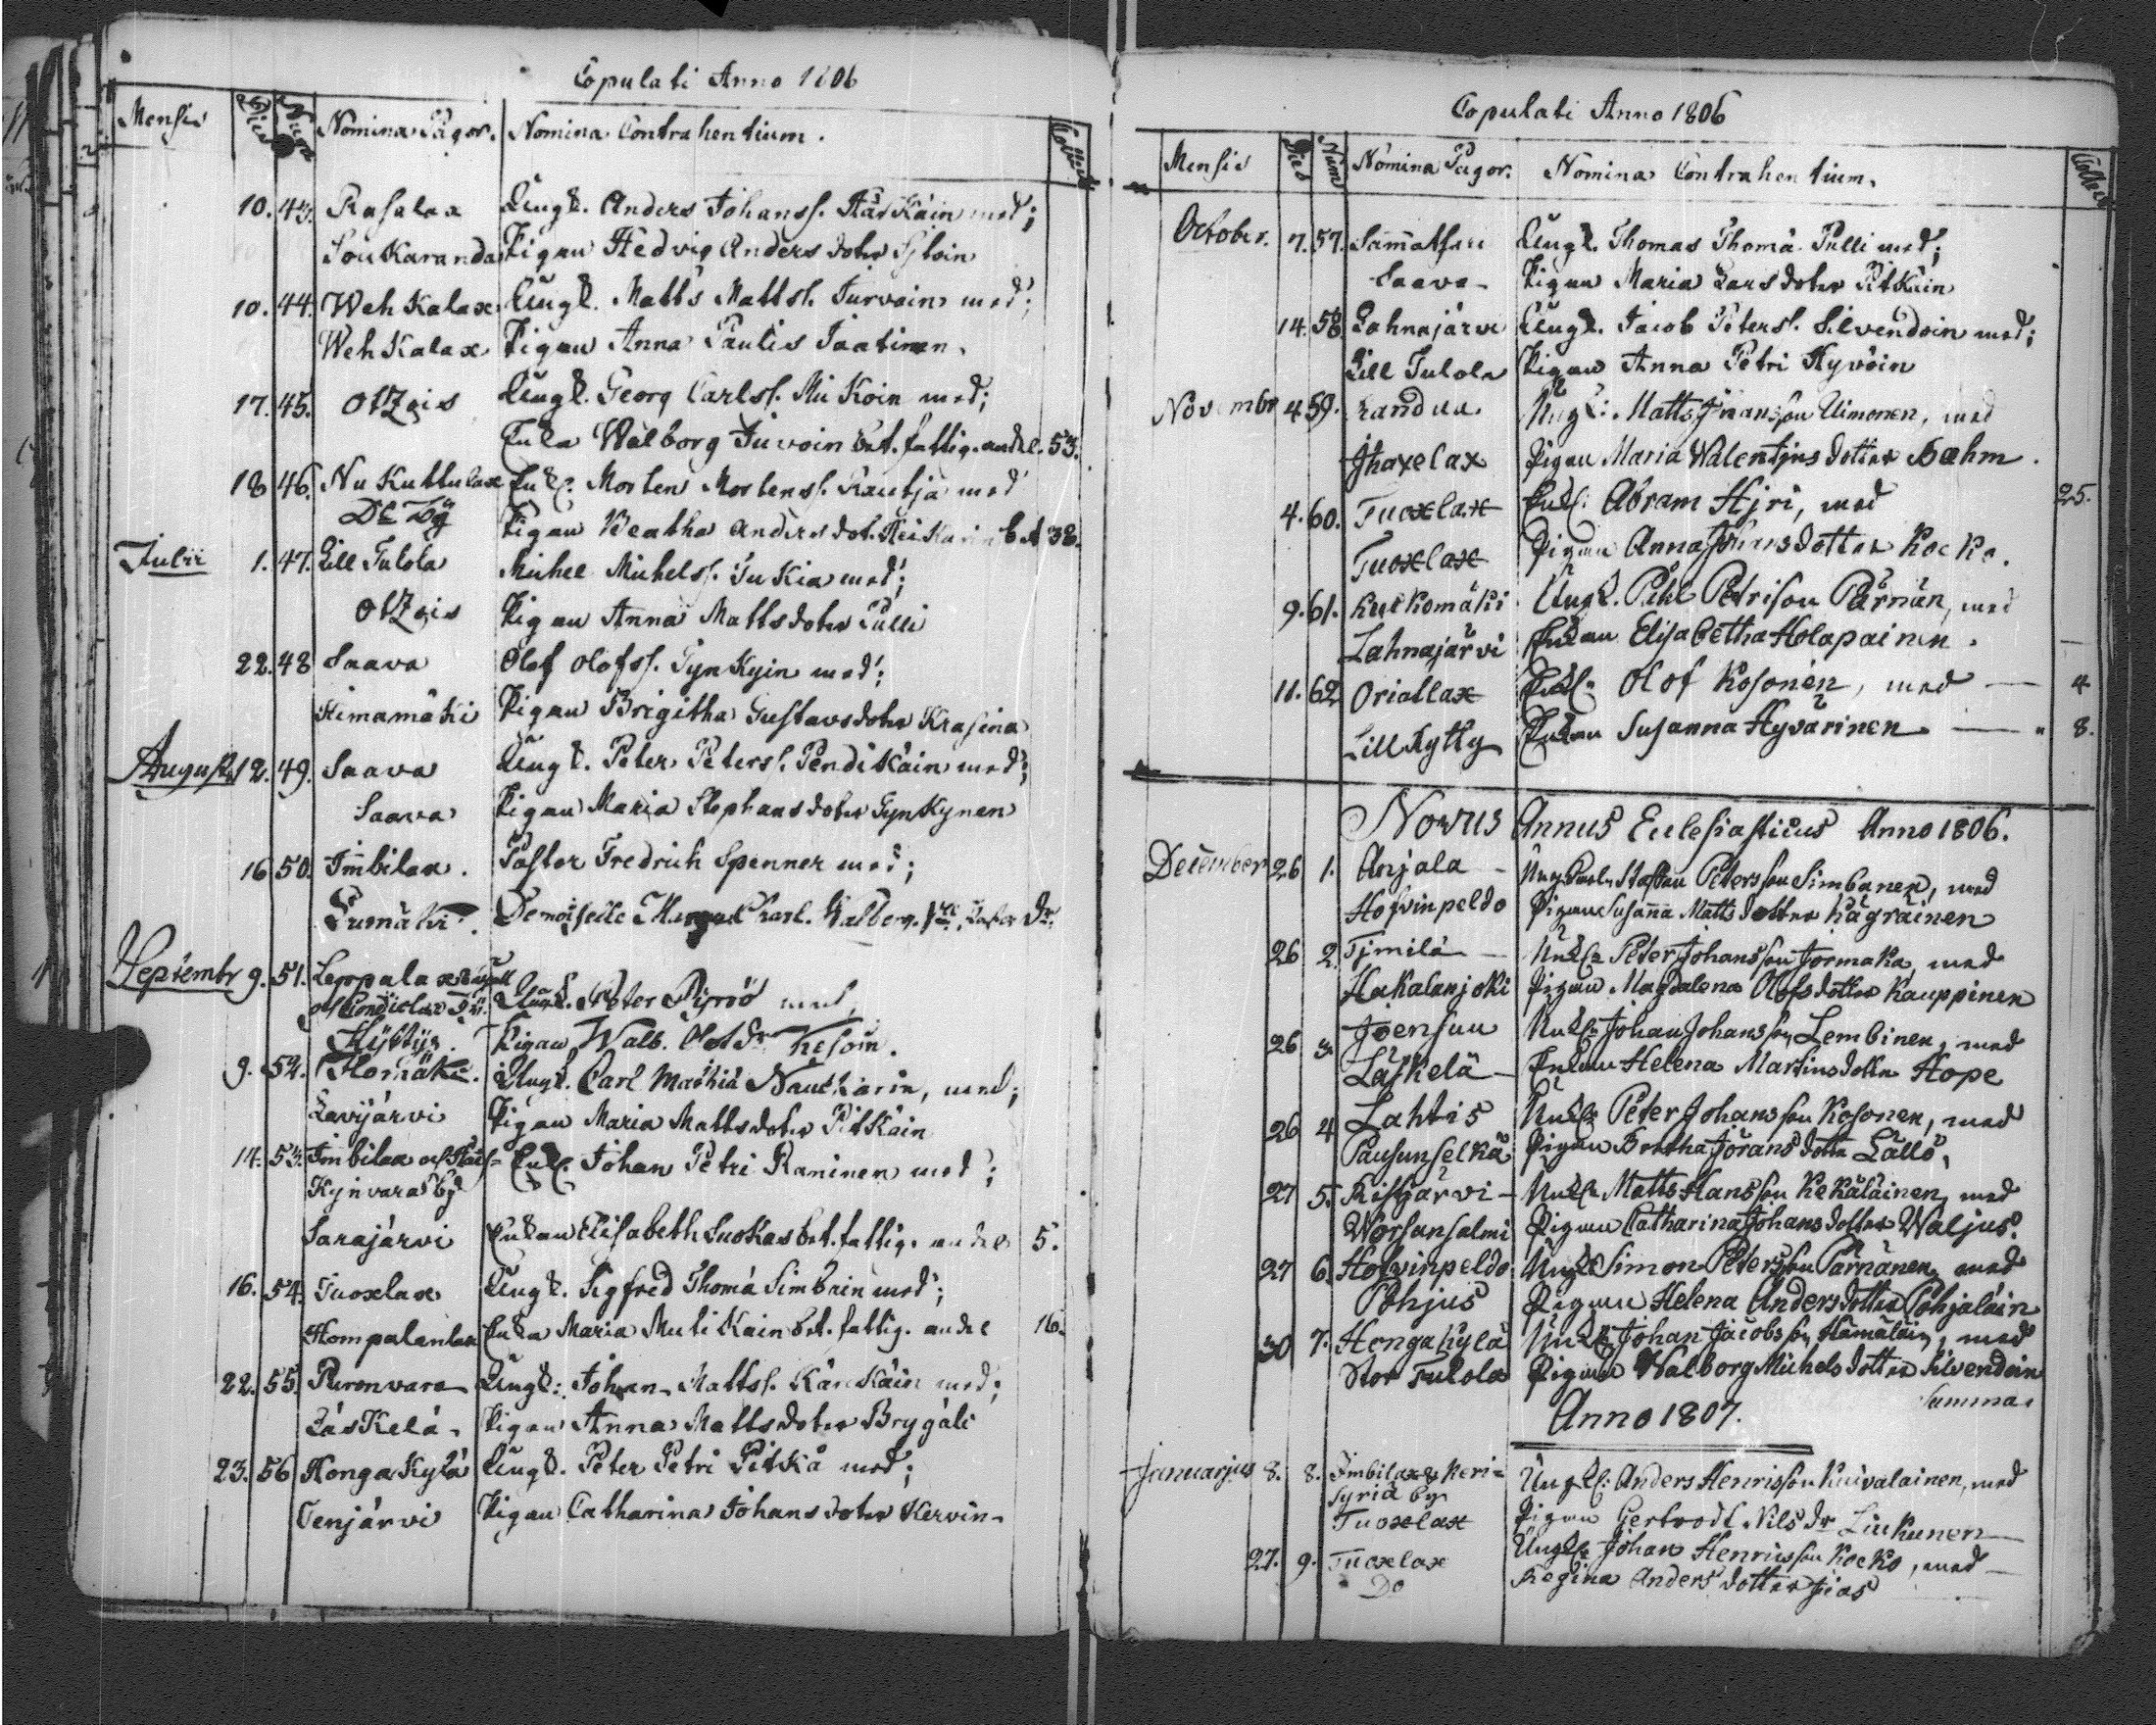 Copulati Anno 1806
Mensis Dies Num Nomina Pagor. Nomina Contrahentium. Collect
10. 43. Rasalax Ungk. Anders Johanss. Kärkäin med;
Soukaranda Pigan Hedvig Anders doter
10. 44. Wehkalax Ungk. Matts Mattss. Turvain med;
Wehkalax Pigan Anna Paulis Jaatinen.
17. 45. Otzois Ungk. Georg Carlss. Mikoin med;
Enka Walborg Juvoin bet. fattig. andel. 53.
18 46. Nukuttulax Enkl. Morten Mortenss. Rautja med
De By Pigan Beatha Anders dot. Heikarin bet 38.
Julii 1. 47. Lill Tulola Michel Michelss. Tukia med;
Otzois Pigan Anna Matts doter Pulli
22. 48 Saava Olof Olofss. Tynkyin med;
Himamäki Pigan Brigitha Gustavsdoter Krasina
August 12. 49. Saava Ungk. Peter Peterss. Pendikäin med;
Saava Pigan Maria Stephans doter Tynkynen
16 50. Imbilax. Pastor Fredrich Spenner med;
Sumäki. Demoiselle Walberg
Septembr 9. 51. Leppalax
Ungk. Peter Pipnö med,
Kyttys. Pigan Walb. Olofdr Kesoin.
9. 52. Homäki. Ungk. Carl Mathiä Nautkarin, med;
Lavijärvi Pigan Maria Matts doter Pitkäin
14. 53. Imbilax och Enkl. Johan Petri Raninen med;
Kynvaras by
Sarajärvi Enkan Elisabeth Suokas bet. fattig. andel 5.
16. 54. Tuoxlax Ungk. Sigfred Thomä Simbain med;
Hompalanlax Enka Maria Mutikain bet. fattig. andel 16.
22. 55. Reronvara Ungk: Johan Mattss. Kärckäin med;
Läskelä. Pigan Anna Matts doter Brygäli
23. 56 Hongakylä Ungk. Peter Petri Pitkä med;
Tenjärvi Pigan Catharina Johans doter Kervin
Copulati Anno 1806
Mensis Dies Num Nomina Pagor. Nomina Contrahentium. Collect
October. 7. 57. Sammatsari Ungk. Thomas Thomä Pulli med;
Saava Pigan Maria Lars doter Pitkäin
14. 58. Lahnajärvi Ungk. Jacob Peterss. Silvendoin med;
Lill Tulola Pigan Anna Petri Kyvöin
Novembr 4 59. Randua. Ungk: Matts Jöransson Uimonen, med
Jhaxelax Pigan Maria Walentjns dotter Bæhm.
4. 60. Tuoxlax Enkl: Abram Hjri, med 25.
Tuoxlax Pigan Anna Johansdotter Kocko.
9. 61. Kurkomäki Ungk. Påhl Petrison Pärnän, med
Lahnajärvi Enkan Elisabetha Holapainen.
11. 62 Oriatlax Enkl. Olof Kosonen, med — 4
Lill Kytty Enkan Susanna Hyvärinen — " 8.
Novus Annus Eclesiasticus Anno 1806.
December 26 1. Anjala - Staffan Petersson Simbanen, med
Hofvinpeldo Pigan Susanna Matts dotter Kägräinen
26 2. Tjmilä - Unkl. Peter Johansson Jormaka, med
Hakalanjoki Pigan Magdalena Olofs dotter Kauppinen
26 3. Joensuu Unkl. Johan Johansson Lembinen, med
Läskelä - Enkan Helena Martins dotter Hope
26 4 Lahtis Unkl. Peter Johansson Kosonen, med
Pausunselkä Pigan Breatha Jörans dotter Lällö.
27 5. Ristjärvi - Unkl. Matts Hansson Kekäläinen, med
Worsunsalmi Pigan Catharina Johans dotter Waljus.
27 6. Hofvinpeldo Ungk. Simon Petersson Pärnänen, med
Pohjus Pigan Helena Anders dotter Pohjaläin
30 7. Hongakylä Unkl. Johan Jacobsson Hämäläin, med
Stor Tulola Pigan Walborg Michels dotter Silvendoin
Summa.
Anno 1807.
Januarjus 8. 8. Imbilax & Keri=
syriä by Ungk: Anders Henrisson Kuivalainen, med
Tuoxlax Pigan Gertrodt Nils dr Liukunen
27. 9. Tuoxlax Ungk. Johan Henrisson Kocko, med
Do Regina Anders dotter Jias